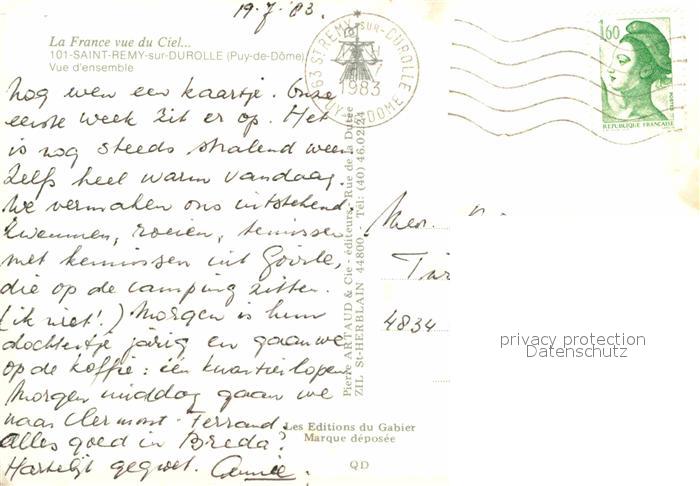 19.7.83.
La France vue du Ciel...
101-SAINT-REMY-sur-DUROLLE (Puy-de-Dôme)
Vue d'ensemble
Nog even een kaartje. Onze
eerste week zit er op. Het
is nog steeds stralend weer
Zelfs heel warm vandaag.
We vermaken ons uitstekend.
Zwemmen, roeien, tennissen
met kennissen uit Goirle,
die op de camping zitten.
(ik niet!) Morgen is hun
dochtertje jarig en gaan we
op de koffie: één kwartier lopen
Morgen middag gaan we
naar Clermont-Ferrand.
Alles goed in Breda?
Hartelijk gegroet. Annie.
63 ST REMY-SUR-DUROLLE
1983
PUY-DE-DOME
1,60
REPUBLIQUE FRANÇAISE
Pierre ARTAUD & Cie - éditeurs, Rue de la Dutée
ZIL St-HERBLAIN 44800 - Tél: (40) 46.02.24
4834
privacy protection
Datenschutz
Les Editions du Gabier
Marque déposée
QD